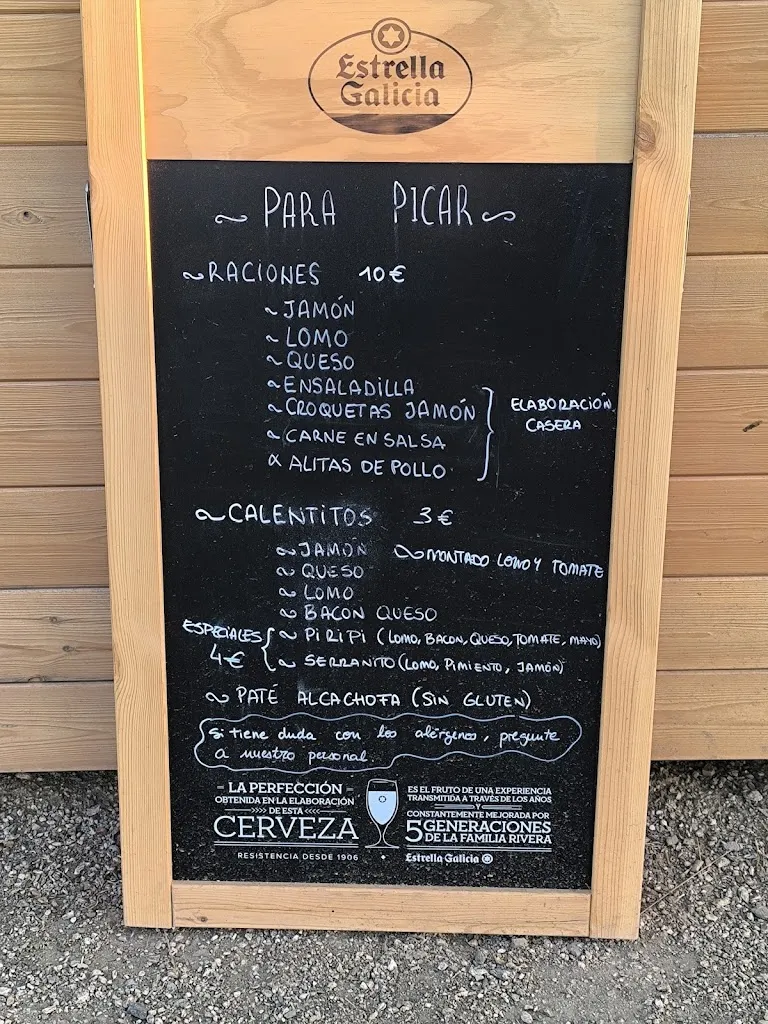 Estrella
Galicia
~ PARA PICAR ~
~ RACIONES 10€
~ JAMÓN
~ LOMO
~ QUESO
~ ENSALADILLA
~ CROQUETAS JAMÓN
~ CARNE EN SALSA
~ ALITAS DE POLLO
ELABORACIÓN
CASERA
~ CALENTITOS 3€
~ JAMÓN ~ MONTADO LOMO Y TOMATE
~ QUESO
~ LOMO
~ BACON QUESO
ESPECIALES
4€
~ PIRIPI (LOMO, BACON, QUESO, TOMATE, MAYO)
~ SERRANITO (LOMO, PIMIENTO, JAMÓN)
~ PATÉ ALCACHOFA (SIN GLUTEN)
Si tiene duda con los alérgenos, pregunte
a nuestro personal.
LA PERFECCIÓN
OBTENIDA EN LA ELABORACIÓN
>>>> DE ESTA <<<<
CERVEZA
RESISTENCIA DESDE 1906
ES EL FRUTO DE UNA EXPERIENCIA
TRANSMITIDA A TRAVÉS DE LOS AÑOS
Y
CONSTANTEMENTE MEJORADA POR
5 GENERACIONES
DE LA FAMILIA RIVERA
Estrella Galicia